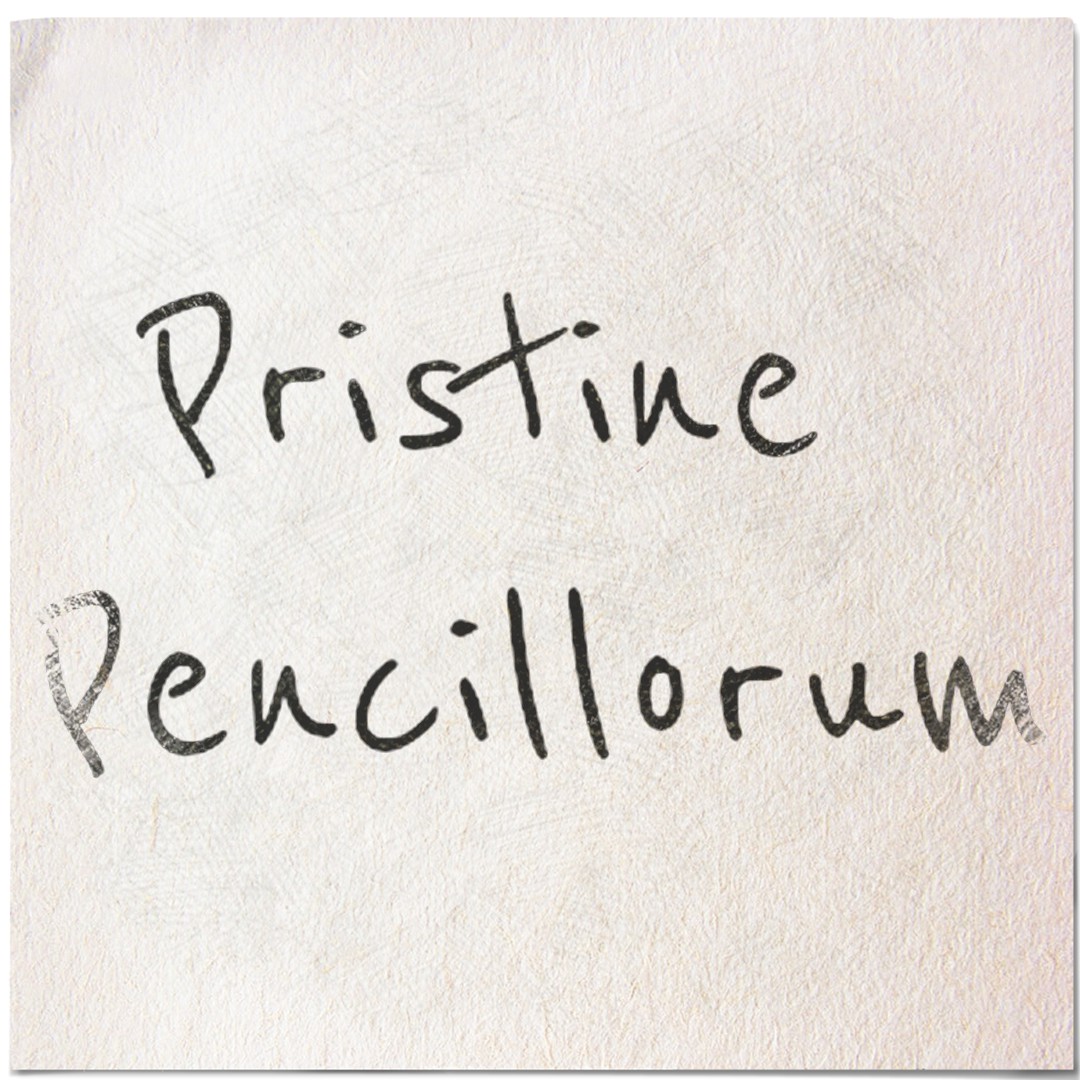 Pristine
Pencillorum